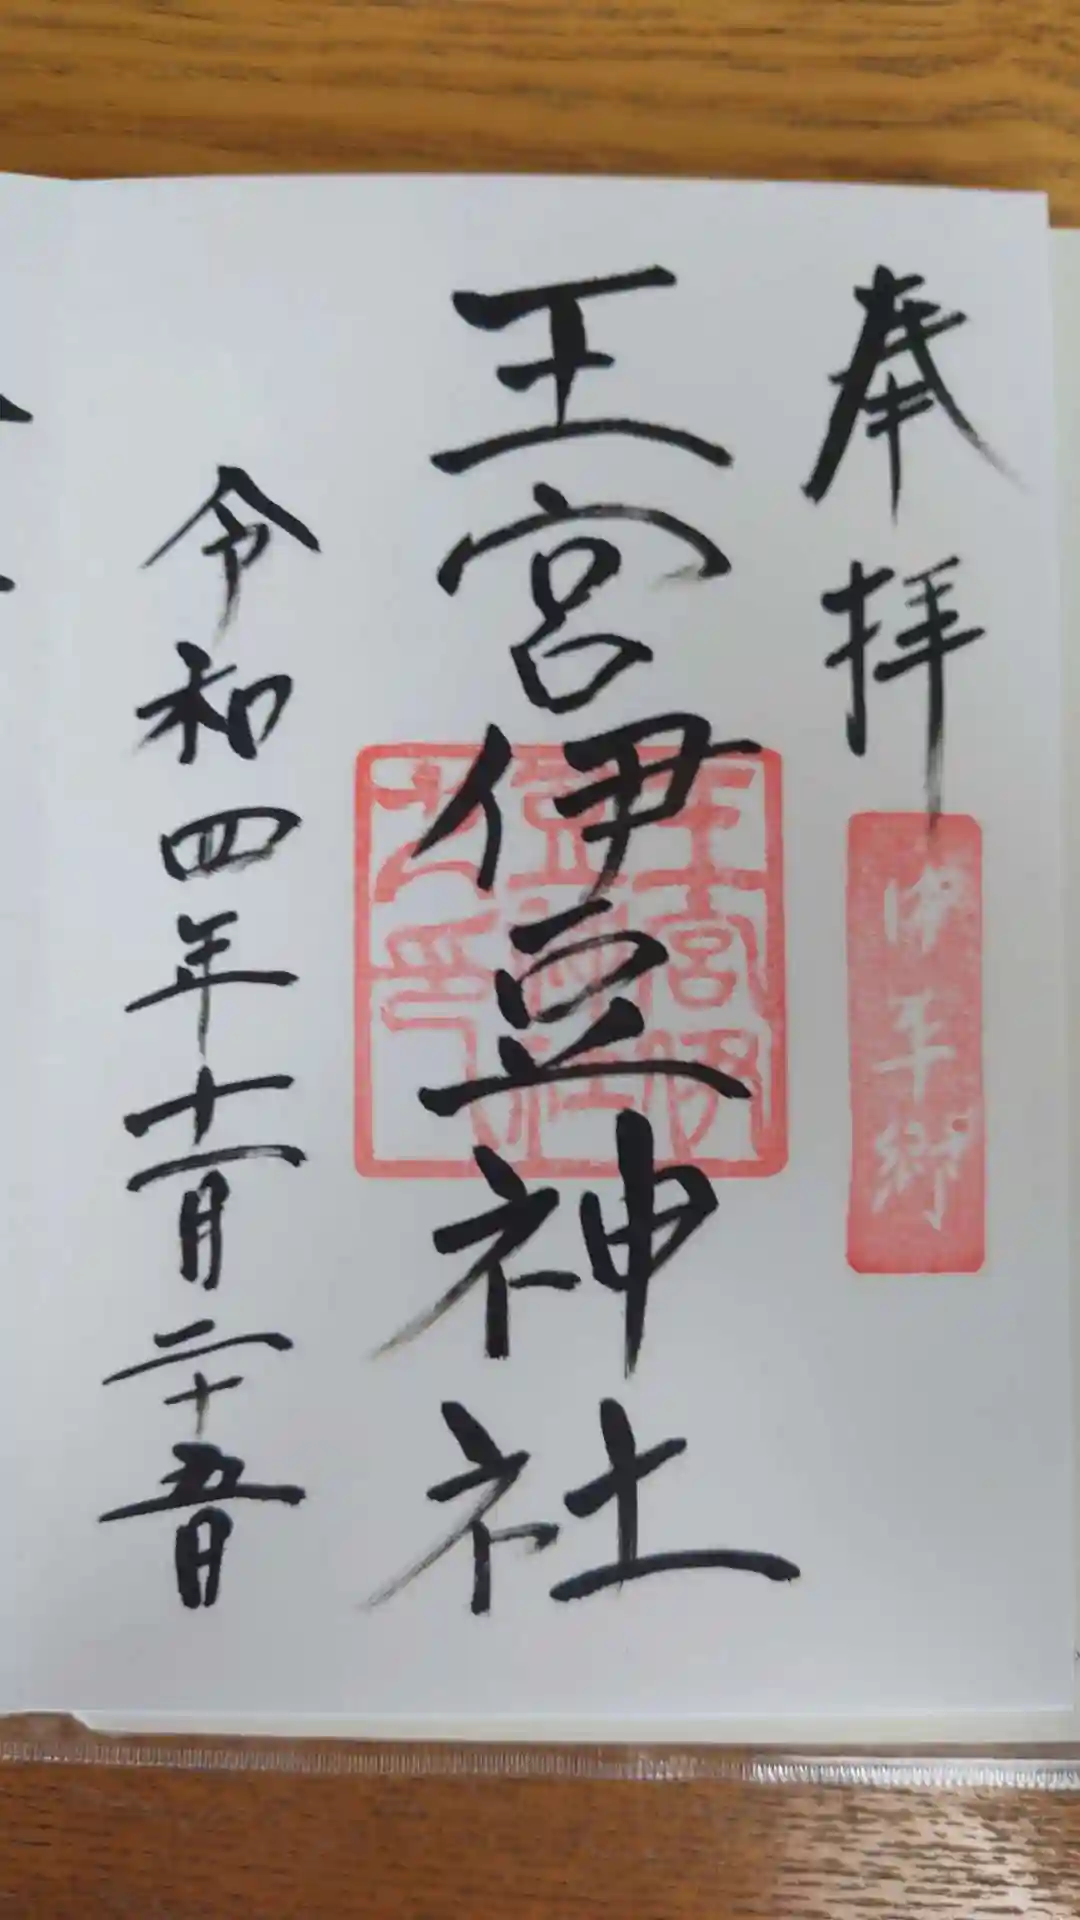 奉拝
伊平郷
王宮伊豆神社
王宮伊
豆神社
之印
令和四年十二月二十五日